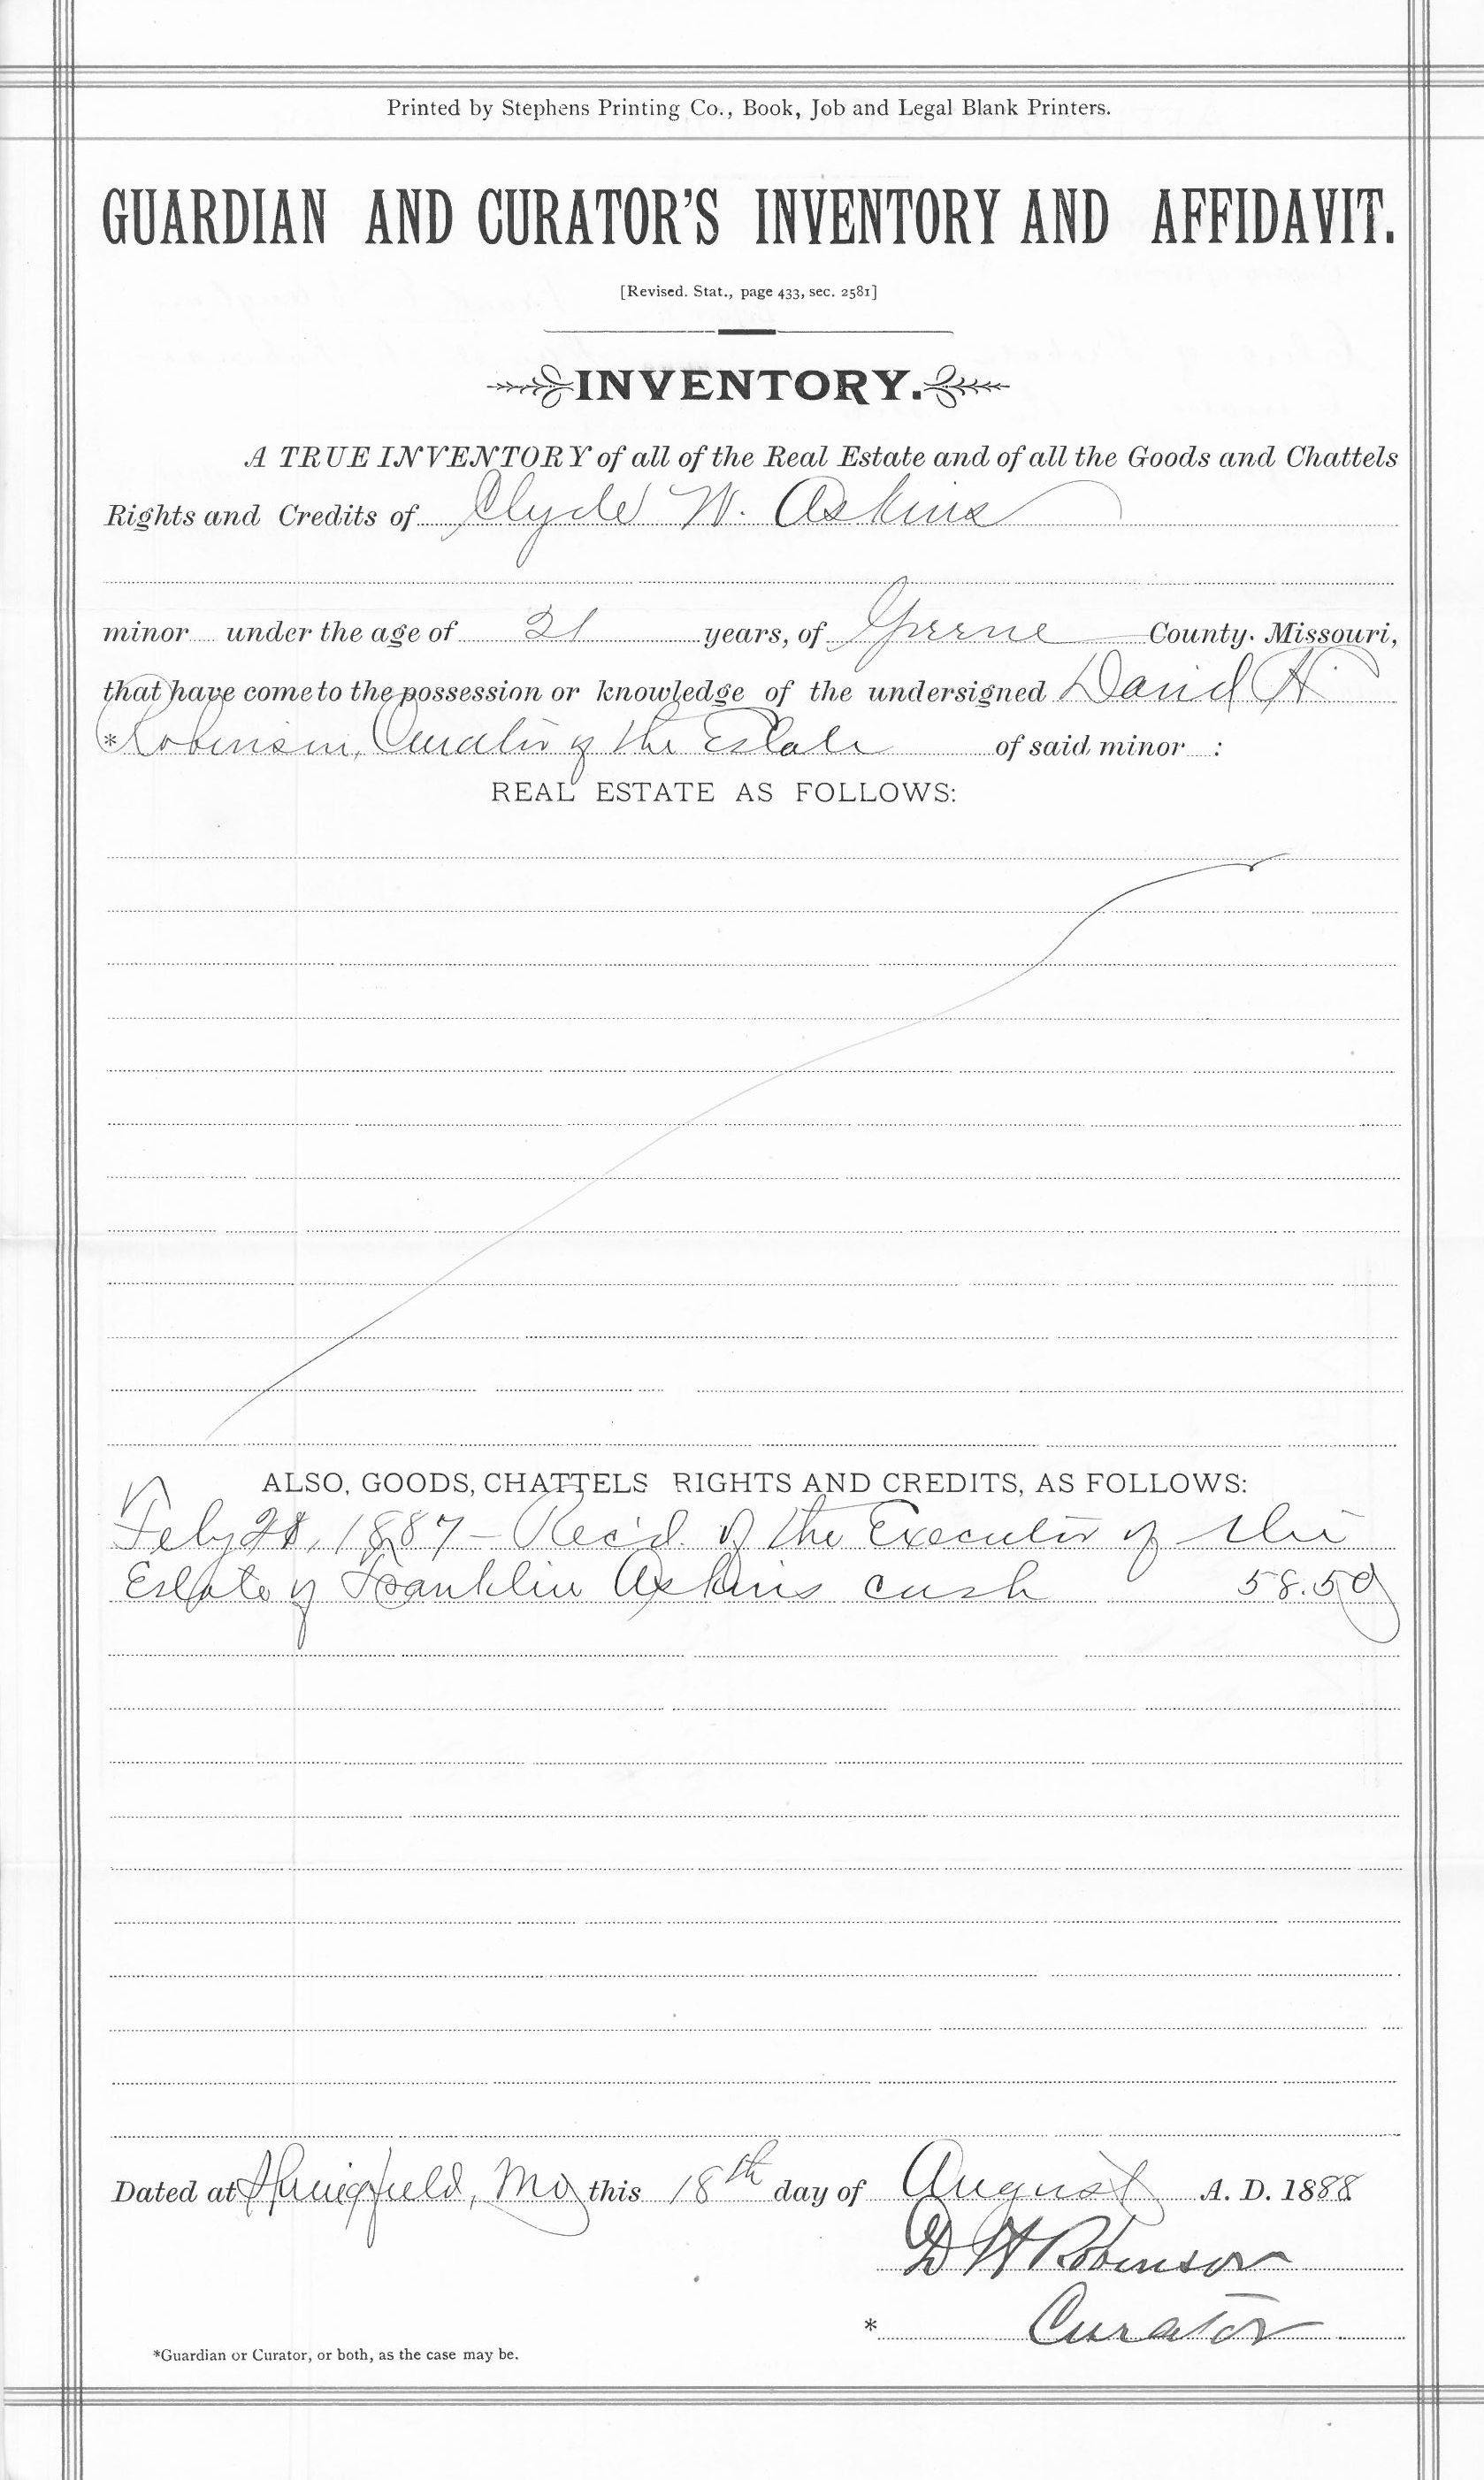 Printed by Stephens Printing Co., Book, Job and Legal Blank Printers.
GUARDIAN AND CURATOR'S INVENTORY AND AFFIDAVIT.
[Revised. Stat., page 433, sec. 2581]
INVENTORY.
A TRUE INVENTORY of all of the Real Estate and of all the Goods and Chattels
Rights and Credits of Clyde W. Askins
minor under the age of 21 years, of Greene County. Missouri,
that have come to the possession or knowledge of the undersigned David H
*Robinson, Curator of the Estate of said minor :
REAL ESTATE AS FOLLOWS:
ALSO, GOODS, CHATTELS RIGHTS AND CREDITS, AS FOLLOWS:
Feby 28, 1887 - Rec'd. of the Executor of the
Estate of Franklin Askins cash 58.50
Dated at Springfield, Mo this 18th day of August A. D. 1888
D H Robinson
* Curator
*Guardian or Curator, or both, as the case may be.